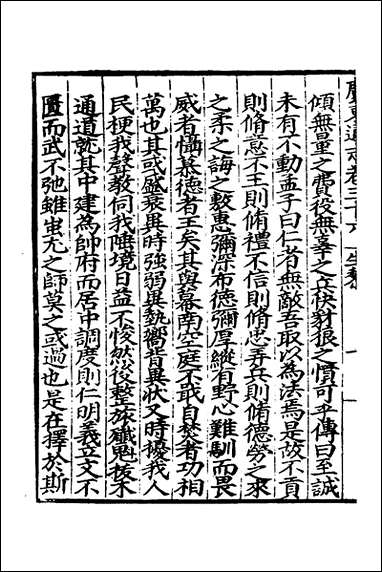 傾無量之費役無辜之立快豺狼之憤可乎傳曰至誠
未有不動孟子曰仁者無敵吾取以為法焉是故不貢
則脩意不王則脩禮不信則脩忠弄兵則脩德勞之來
之柔之誨之敷惠彌深布德彌厚縱有野心難馴而畏
威者懾慕德者至矣其與幕南空庭不戢自焚者功相
萬也其或盛衰異時強弱異勢嚮背異狀又時擾我人
民梗我聲教伺我陲境日益不悛然後整旅殲魁拔木
通道就其中建為帥府而居中調度則仁明義立文不
匱而武不弛雖蚩尤之師莫之或過也是在擇於斯